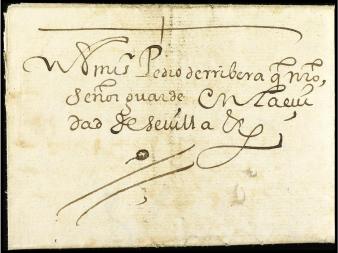 Pedro de rribera q nro
señor guarde en la ciu
dad de sevilla